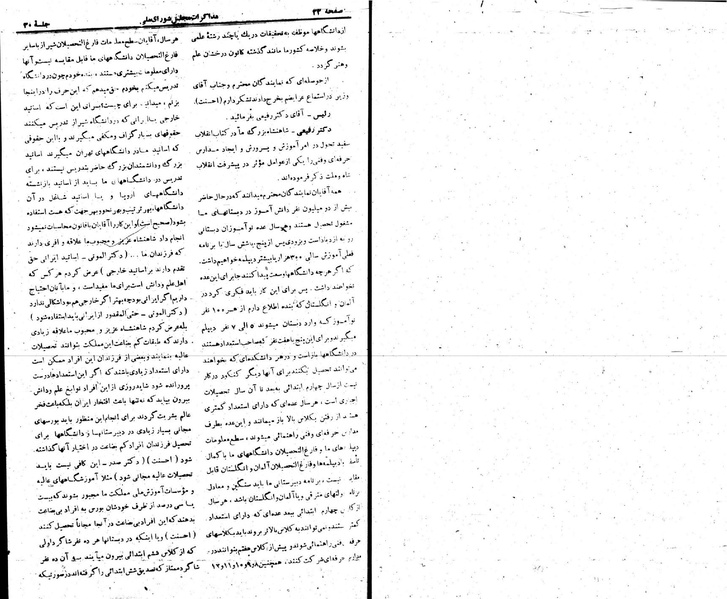 صفحه ۲۳
مذاکرات مجلس شورای ملی
جلسه ۳۰
ازدانشگاهها موظف به تحقیقات دریک یاچند رشتهٔ علمی
بشوند وخلاصه کشورما مانندگذشته کانون درخشان علم
وهنر گردد .
ازحوصله‌ای که نمایندگان محترم وجناب آقای
وزیر دراستماع عرایضم بخرج دادندتشکردارم (احسنت) .
رئیس - آقای دکتر رفیعی بفرمائید .
دکتر رفیعی - شاهنشاه بزرگ ما درکتاب انقلاب
سفید تحول در امرآموزش و پرورش و ایجاد مدارس
حرفه‌ای وفنی را یکی ازعوامل مؤثر در پیشرفت انقلاب
شاه وملت ذکر فرموده‌اند .
همه آقایان نمایندگان محترم میدانند که درحال حاضر
بیش از دو میلیون نفر دانش آموز در دبستانهای مـا
مشغول تحصیل هستند وهرسال عده نوآموزان دبستانی
رو به ازدیاداست وبزودی پس ازپنج یاشش سال با برنامه
فعلی آموزش سالی ۳۰۰هزاریابیشتردیپلمه خواهیم داشت
که اگرهرچه دانشگاهها وسعت پیداکنند جابرای این عده
نخواهند داشت . پس برای این کار باید فکری کرد در
آلمان و انگلستان که بنده اطلاع دارم از هر ۱۰۰ نفر
نوآموز که وارد دبستان میشوند ۵ الی ۷ نفر دیپلم
میگیرند وبرای این پنج یاهفت نفر که صاحب استعداد هستند
دردانشگاهها بازاست و درهر دانشکده‌ای که بخواهند
می‌توانند تحصیل بکنند برای آنها دیگر کنکور درکار
نیست ازسال چهارم ابتدائی ببعد تا آن سال تحصیلات
اجباری است ، هرسال عده‌ای که دارای استعداد کمتری
هستند از رفتن بکلاس بالا باز میمانند و این عده بطرف
مدارس حرفه‌ای وفنی راهنمائی میشوند ، سطح معلومات
دیپلمه‌های ما و فارغ التحصیلان دانشگاههای ما باکمال
تأسف بادیپلمه‌ها وفارغ التحصیلان آلمان و انگلستان قابل
مقایسه نیست . برنامه دبیرستانی ما باید سنگین و معادل
برنامه دولتهای مترقی ویا آلمان و انگلستان باشد ، هرسال
ازکلاس چهارم ابتدائی ببعد عده‌ای که دارای استعداد
کمتر هستند ونمی‌توانند به کلاس بالاتر بروند باید بکلاسهای
حرفه‌ای وفنی راهنمائی شوند و پیش از کلاس هفتم بتوانند در
موارد حرفه‌ای شرکت کنند ، همچنین در ۹ و ۱۰ و ۱۱ و ۱۲
هرسال، آقایان، سطح معلومات فارغ التحصیلان شیراز با سایر
فارغ التحصیلان دانشگاههای ما قابل مقایسه نیست وآنها
دارای معلومات بیشتری هستند ، بنده خودم چون دردانشگاه
تدریس میکنم بخودم حق میدهم که این حرف را دراینجا
بزنم ، میدانید برای چیست برای این است که اساتید
خارجی یا ایرانی که دردانشگاه شیراز تدریس میکنند
حقوقهای بسیارگزاف ومکفی میگیرند و بااین حقوقی
که اساتید ما در دانشگاههای تهران میگیرند اساتید
بزرگ ودانشمندان بزرگ حاضر بتدریس نیستند ، برای
تدریس در دانشگاههای ما باید از اساتید بازنشسته
دانشگاههای اروپا و یا اساتید شاغل در آن
دانشگاهها بهر ترتیبی و بهرنحو وبهرجهت که هست استفاده
بشود (صحیح است) واین کاررا آقایان باقانون محاسبات نمیشود
انجام داد شاهنشاه عزیز و محبوب ما علاقه وافری دارند
که فرزندان ما ... ( دکتر الموتی - اساتید ایرانی حق
تقدم دارند براساتید خارجی ) عرض کردم هرکس که
اهل علم ودانش است برای ما مفید است ، و ما بآنان احتیاج
داریم اگر ایرانی بود چه بهتر اگر خارجی هم بود اشکالی ندارد
( دکتر الموتی - حتی المقدور از ایرانی باید استفاده شود )
بله عرض کردم شاهنشاه عزیز و محبوب ما علاقه زیادی
دارند که طبقات کم بضاعت این مملکت بتوانند تحصیلات
عالیه بنمایند وبعضی از فرزندان این افراد ممکن است
دارای استعداد زیادی باشند که اگر این استعدادها درست
پرورانده شود شاید روزی از این افراد نوابغ علم ودانش
بیرون بیاید که نه تنها باعث افتخار ایران بلکه باعث فخر
عالم بشریت گردند برای انجام این منظور باید بورسهای
مجانی بسیار زیادی در دبیرستانها و دانشگاهها برای
تحصیل فرزندان افراد کم بضاعت در اختیار آنها گذاشته
شود (احسنت) ( دکتر صدر - این کافی نیست باید
تحصیلات عالیه مجانی شود ) مثلا آموزشگاههای عالیه
و مؤسسات آموزش‌عالی مملکت ما مجبور بشوند که بیست
یا سی درصد از طرف خودشان بورس به افراد بی‌بضاعت
بدهند که این افراد بی‌بضاعت در آنجا مجاناً تحصیل کنند
( احسنت ) ویا اینکه در دبستانها هر ده نفر شاگرد اولی
که از کلاس ششم ابتدائی بیرون میآیند یعنی آن ده نفر
شاگرد ممتاز که تصدیق شش ابتدائی را گرفته‌اند درصورتیکه